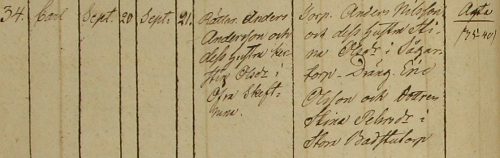 34. Carl Sept. 20 Sept. 21.
Rättar. Anders
Andersson och
dess hustru Ker-
stin Olsdr i
Öfra Skeft-
runa.
Torp. Anders Nilsson
och dess hustru Sti-
na Olsdr i Sågar-
torp. Dräng. Eric
Olsson och
Stina Petersdr i
Stora Badstutorp
(75-40)